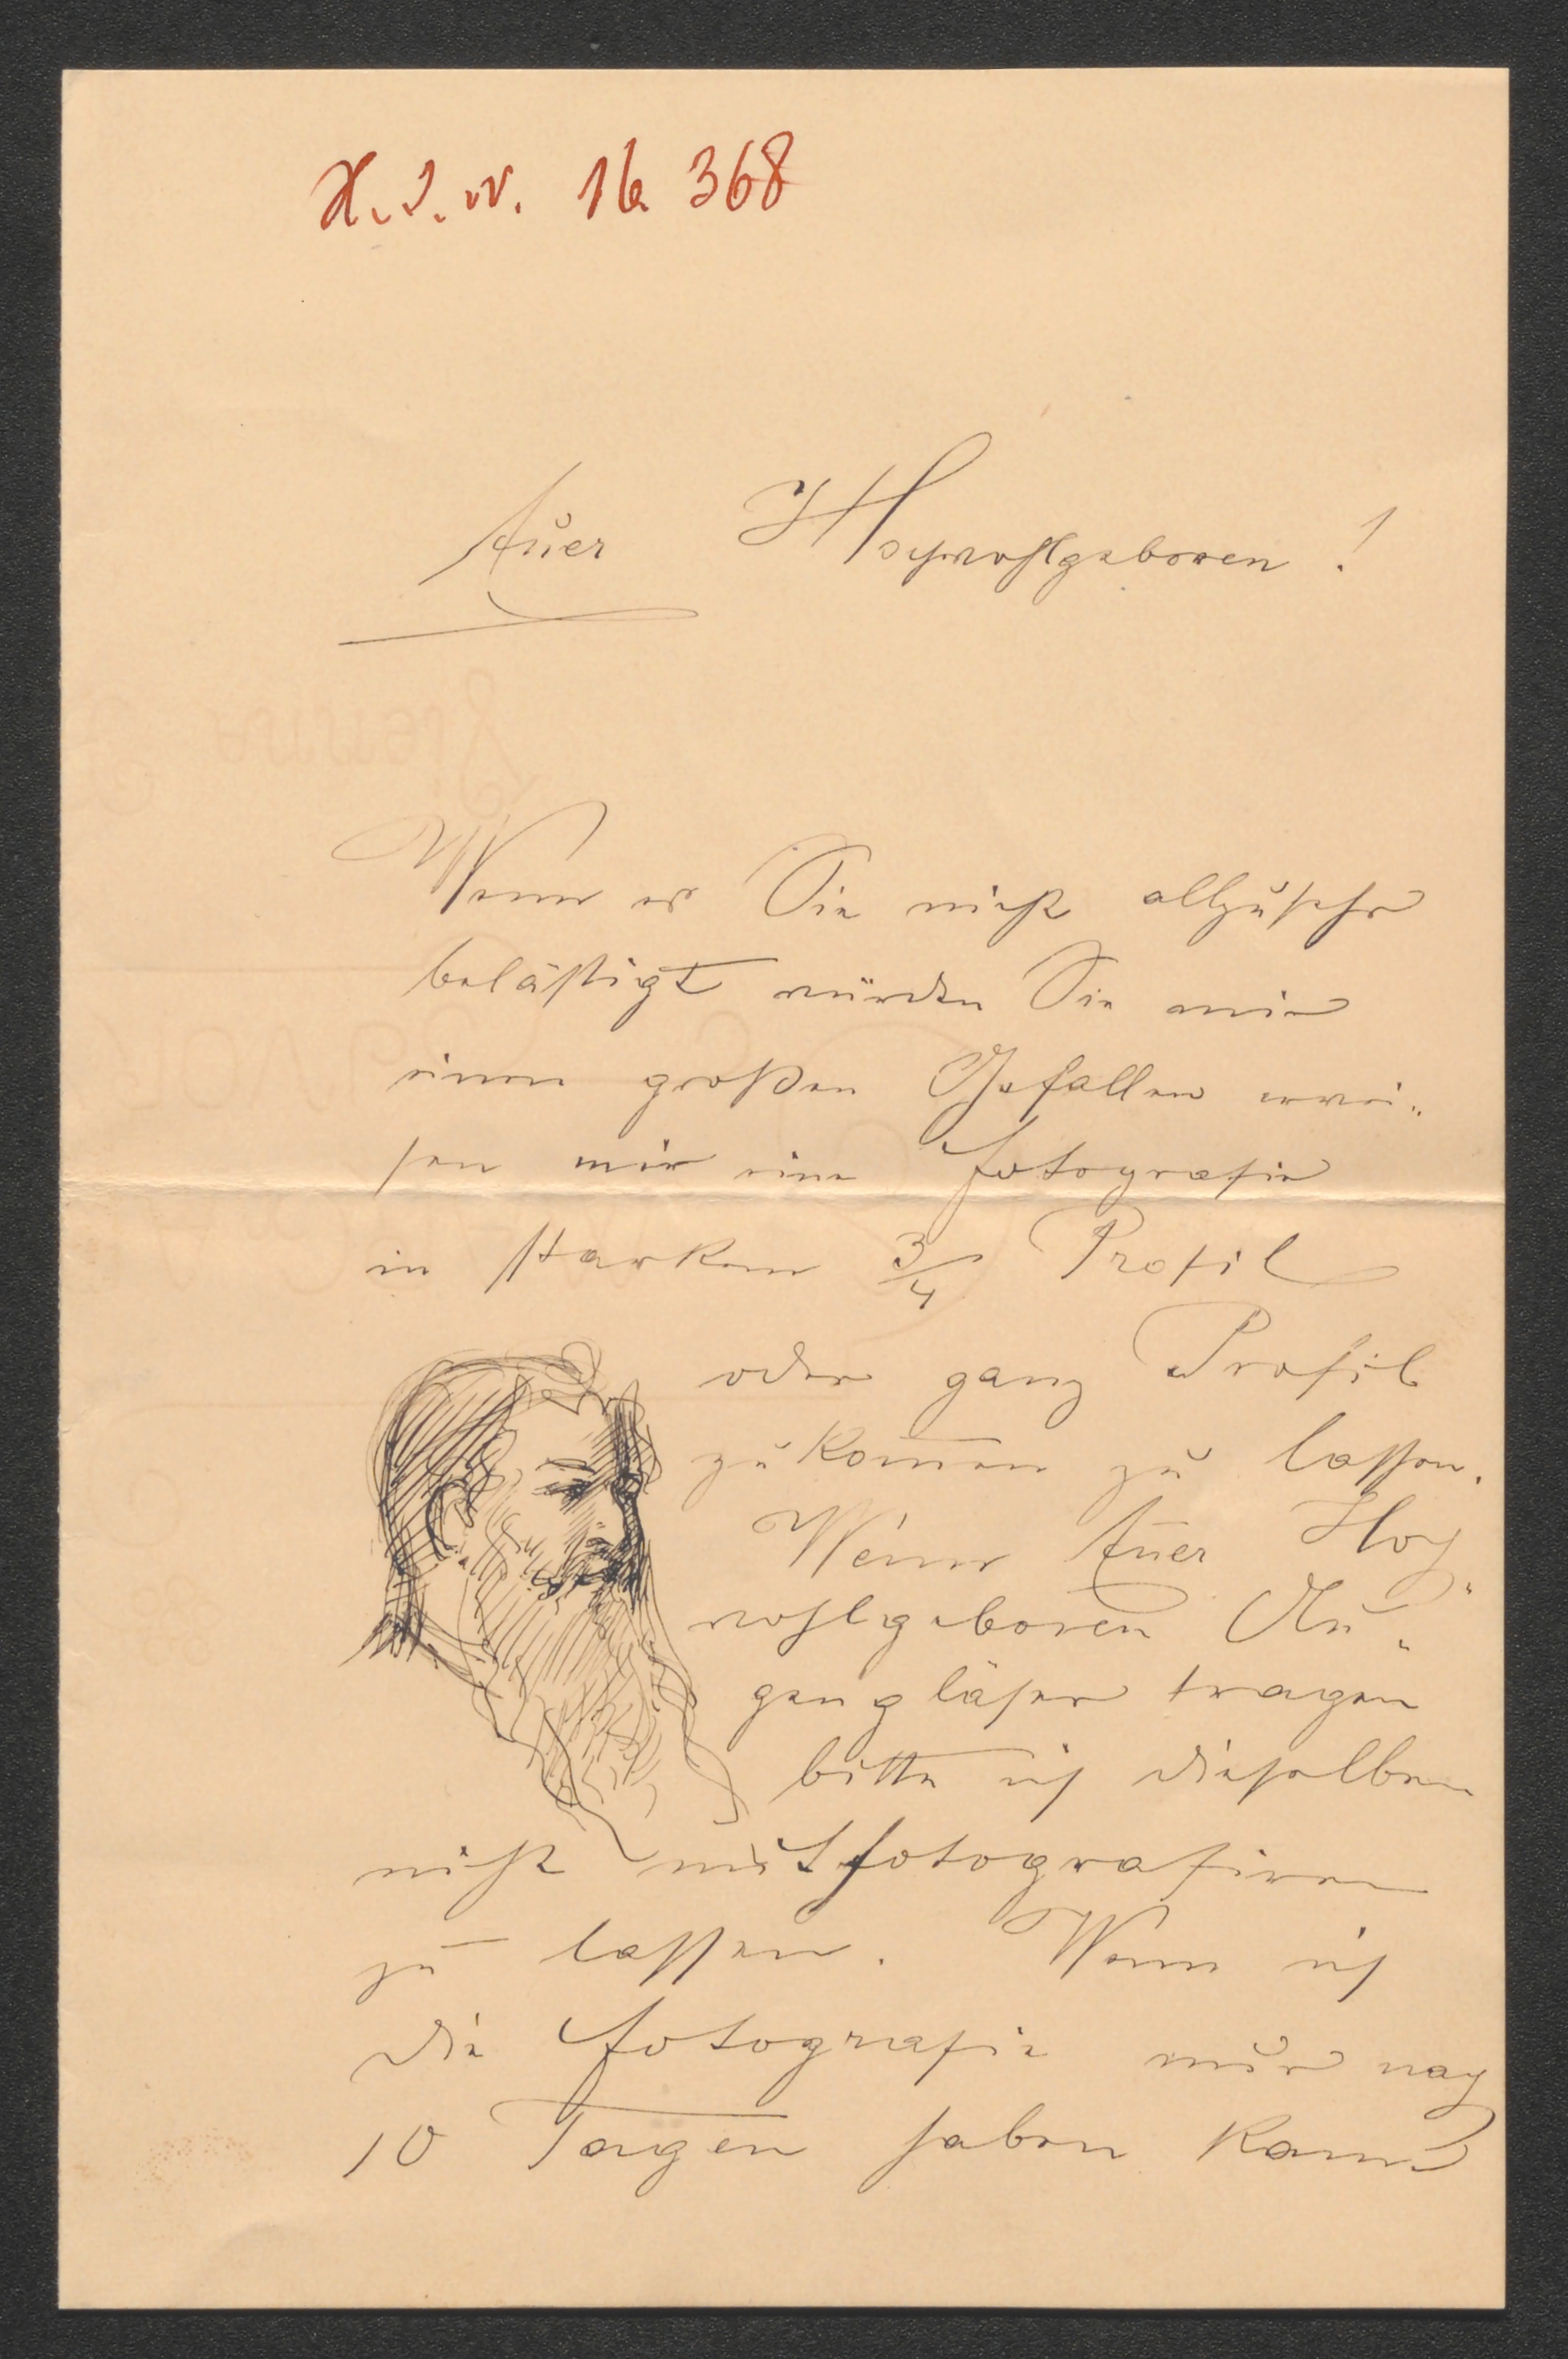 H. I. N. 16 368
Euer Hochwohlgeboren!
Wenn es Sie nicht allzusehr
belästigt würden Sie mir
einen großen Gefallen erwei-
sen mir eine Fotografie
in starkem 3/4 Profil
oder ganz Profil
zukom̅en zu lassen.
Wenn Euer Hoch-
wohlgeboren Au-
gengläser tragen
bitte ich dieselben
nicht mitfotografiren
zu lassen. Wenn ich
die Fotografie nur nach
10 Tagen haben kann